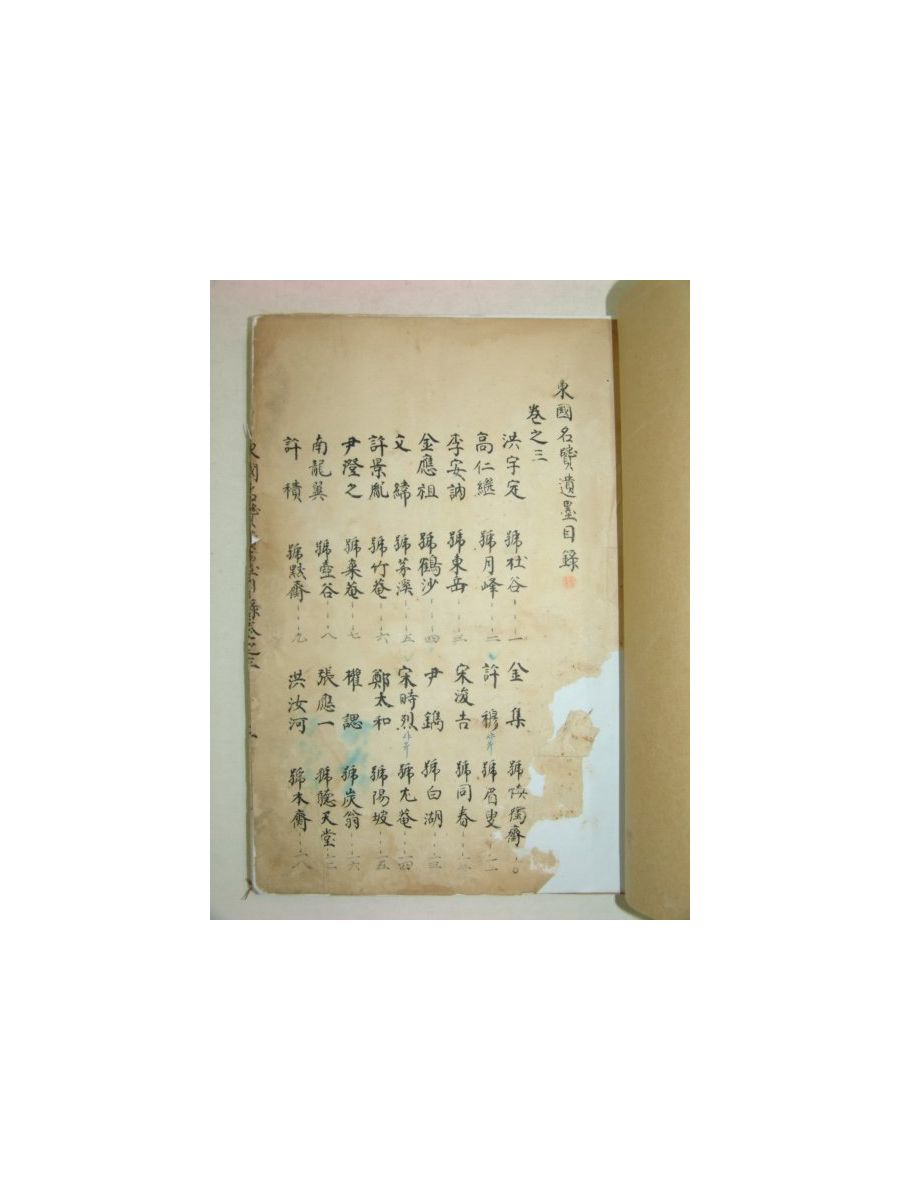 東國名賢遺墨目錄
卷之三
洪宇定 號杜谷 一 金集 號愼獨齋 一〇
高仁繼 號月峰 二 許穆 號眉叟 一一
李安訥 號東岳 三 宋浚吉 號同春 一二
金應祖 號鶴沙 四 尹鑴 號白湖 一三
文緯 號茅溪 五 宋時烈 號尤菴 一四
許景胤 號竹菴 六 鄭太和 號陽坡 一五
尹澄之 號 菴 七 權諰 號炭翁 一六
南龍翼 號壺谷 八 張應一 號聽天堂 一七
許積 號默齋 九 洪汝河 號木齋 一八